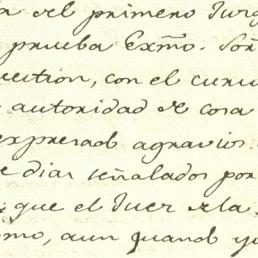 a del primero Juzg
prueba Exmo. Señ
cuestion, con el curu
autoridad de cosa
expresados agravios.
e dias señalados por
; que el Juez de la
omo, aun quando yo